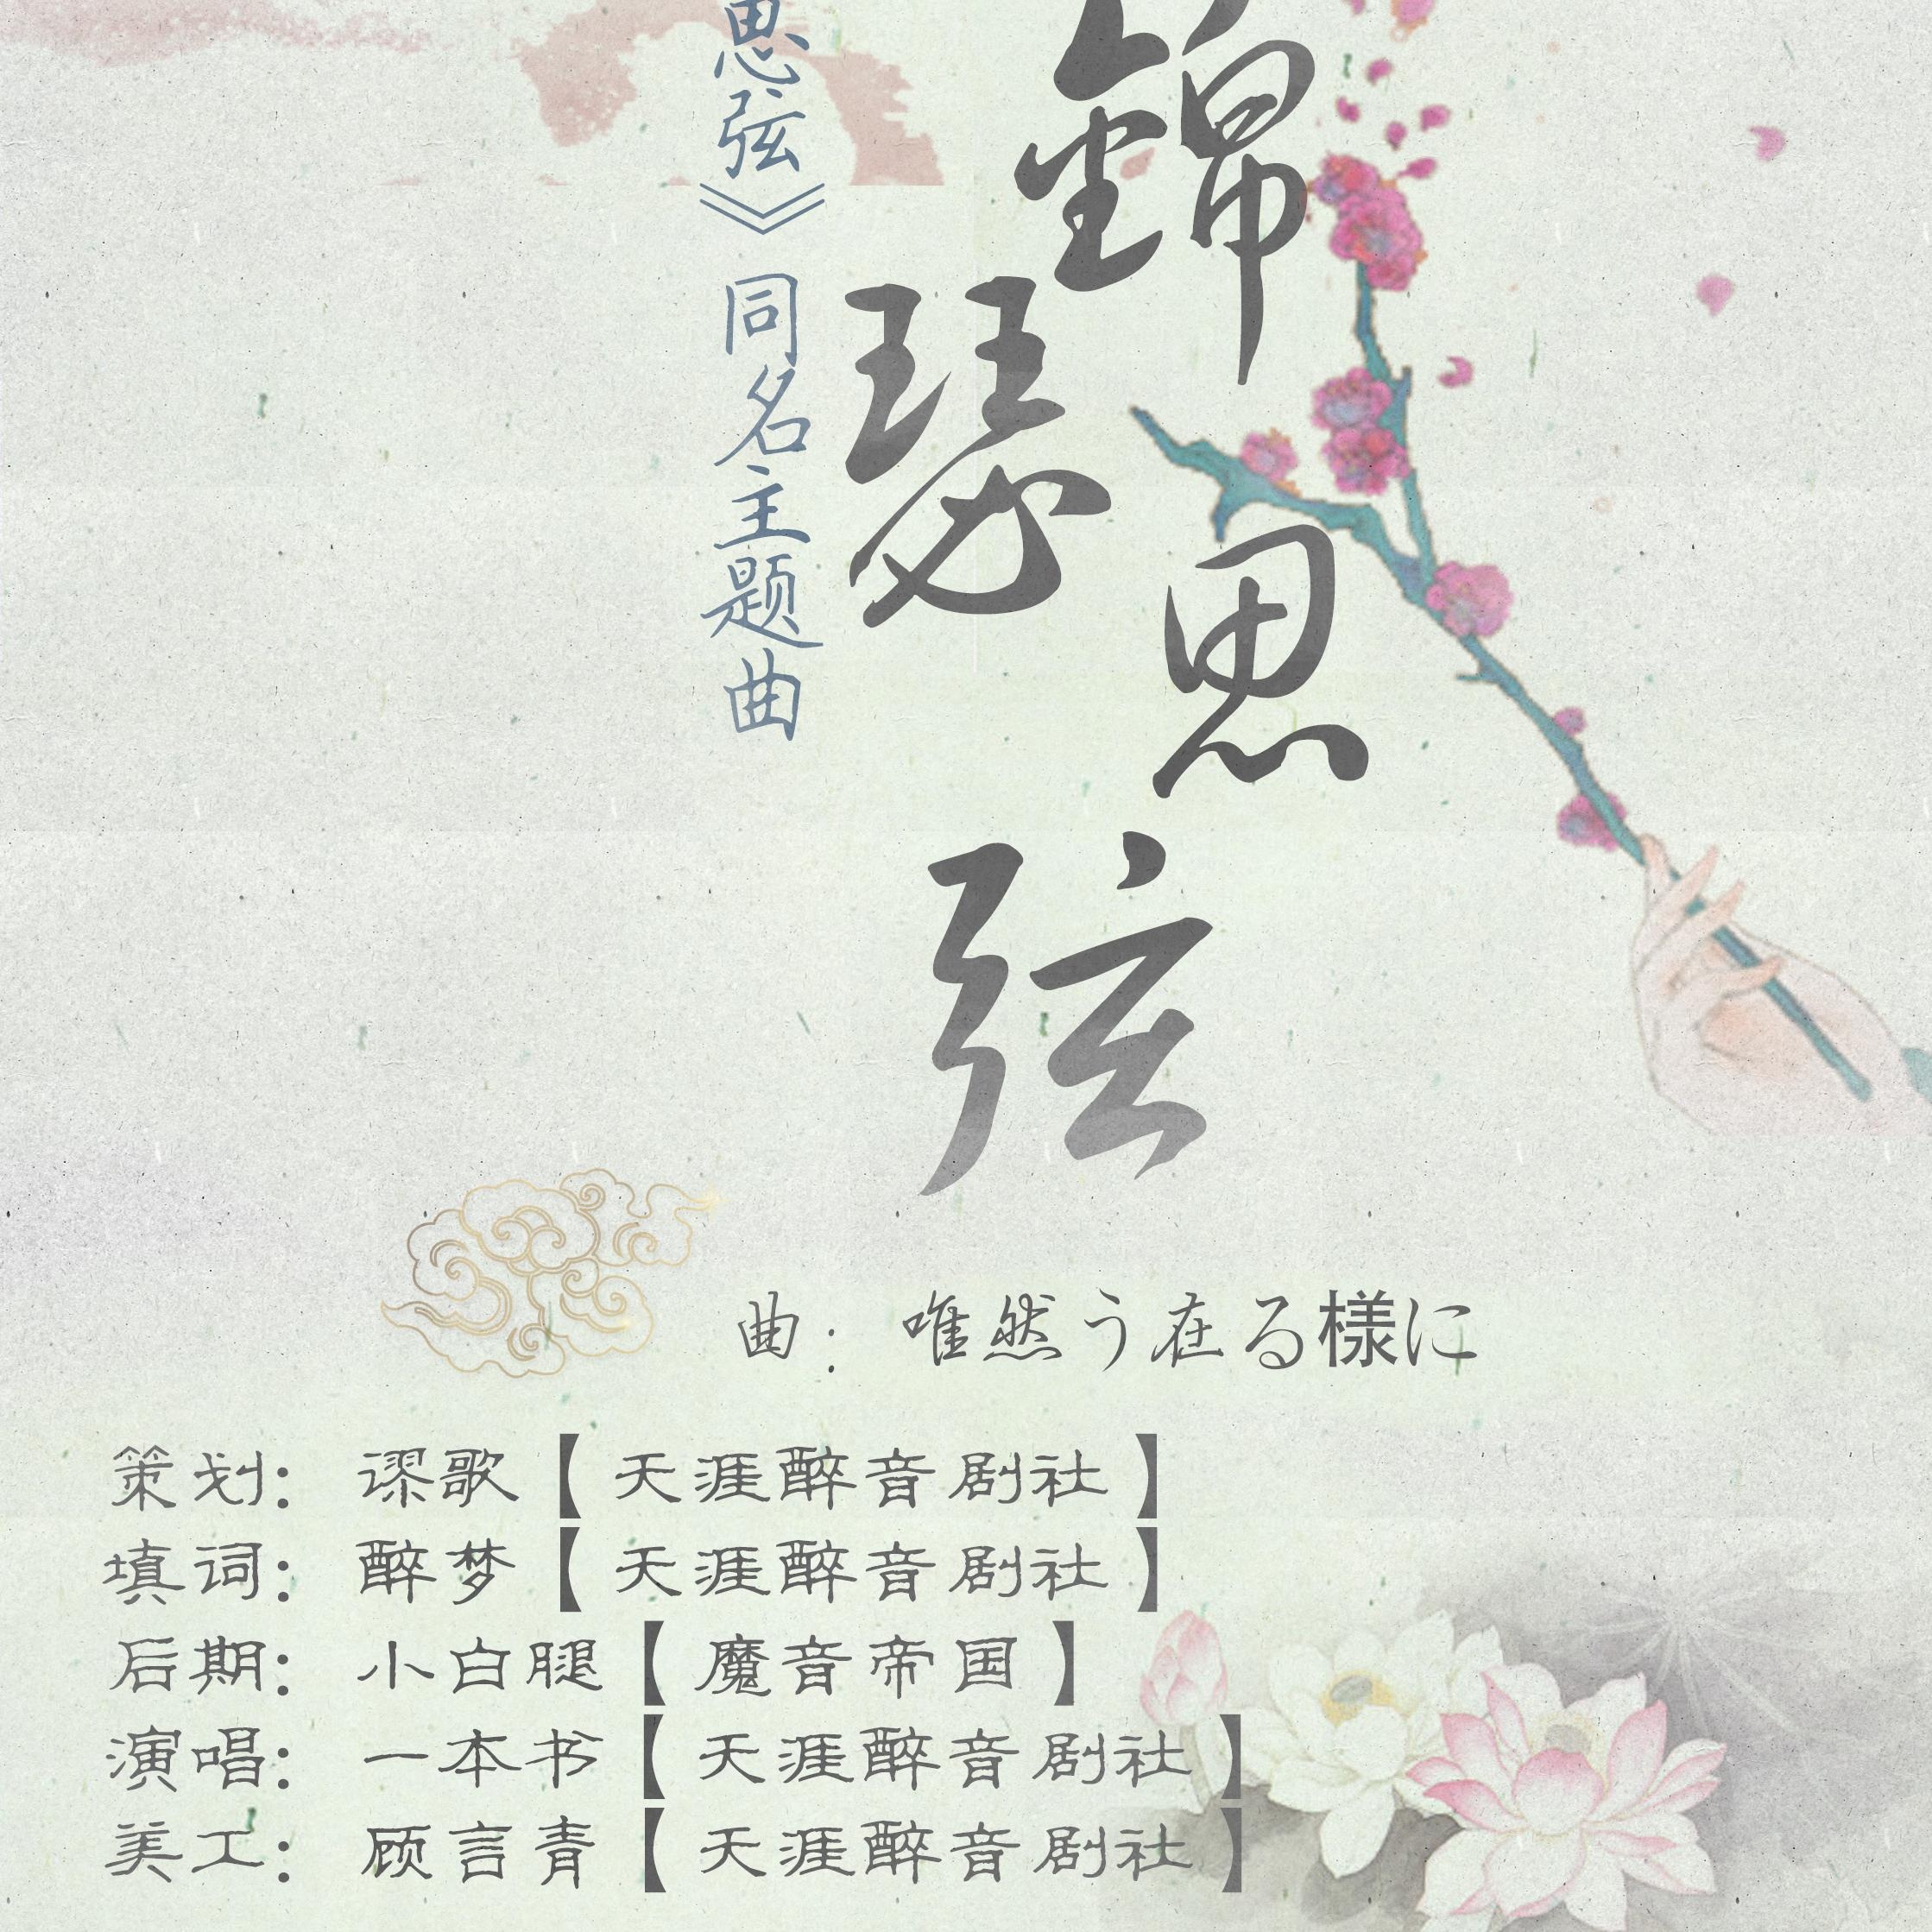 錦瑟思弦
思弦》同名主题曲
曲：唯然う在る様に
策划：谬歌【天涯醉音剧社】
填词：醉梦【天涯醉音剧社】
后期：小白腿【魔音帝国】
演唱：一本书【天涯醉音剧社】
美工：顾言青【天涯醉音剧社】